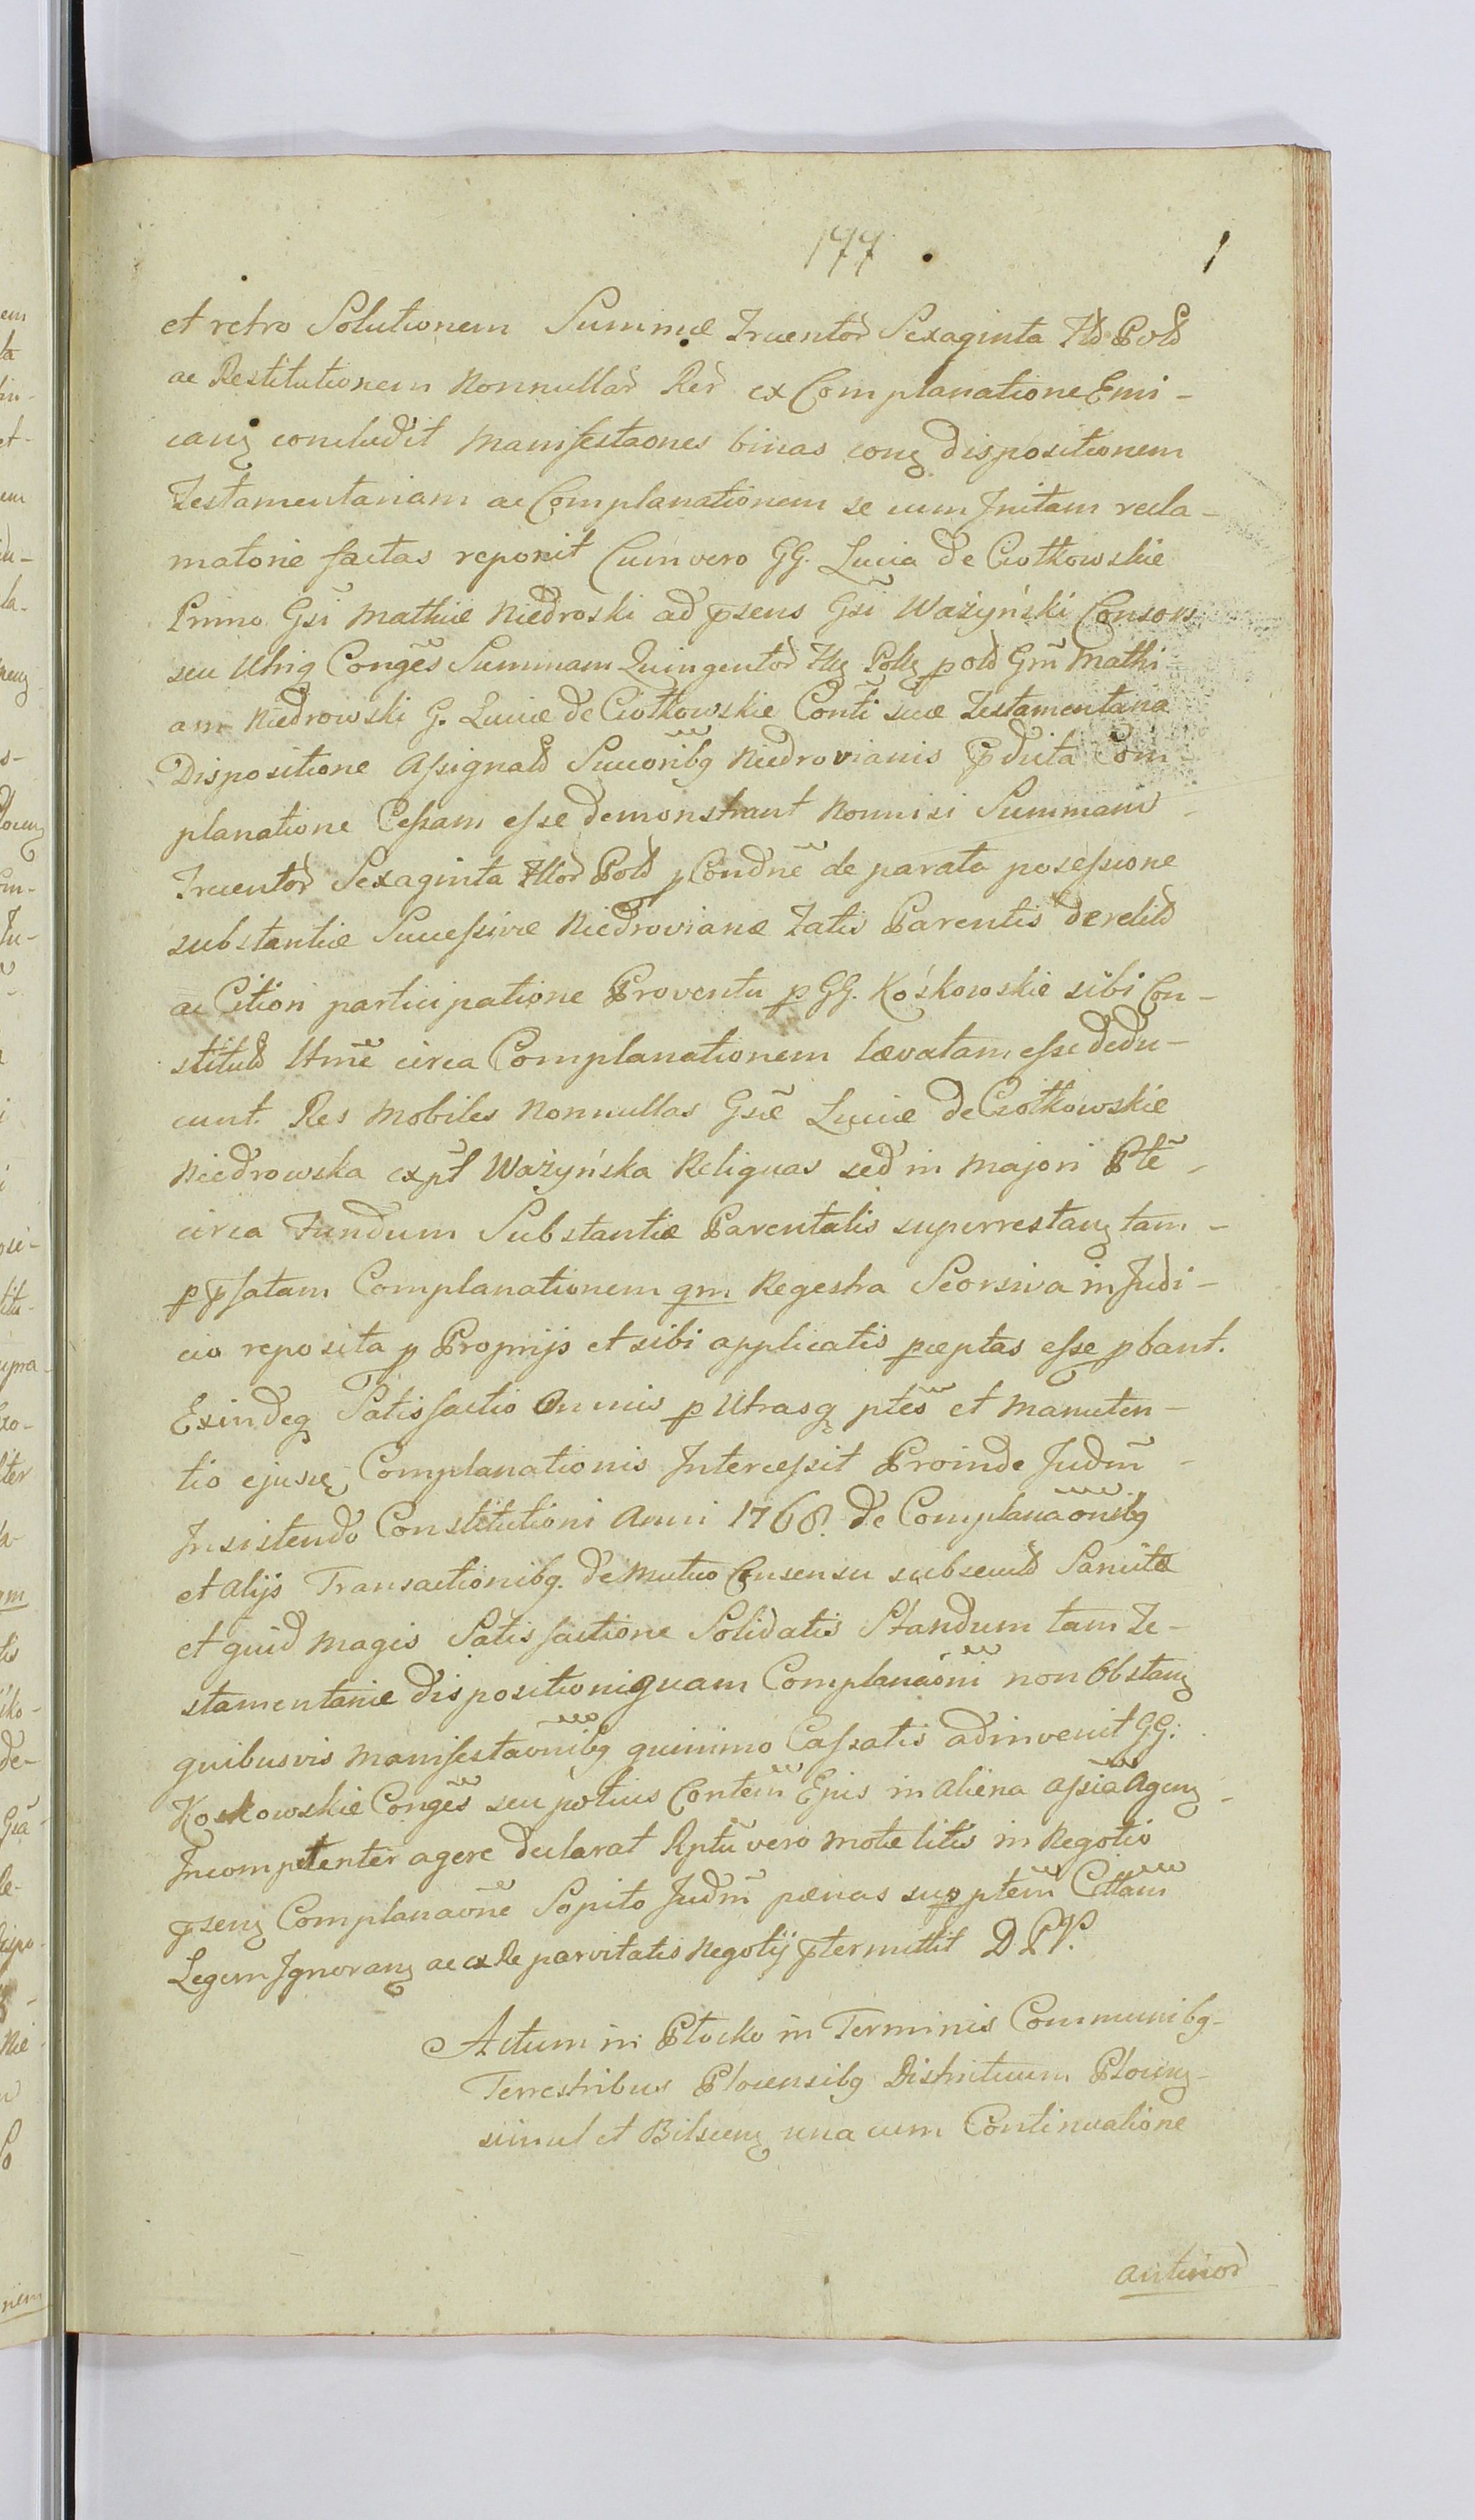 177
1
et retro Solutionem Summæ Trecentor̃ Sexaginta Flõ Polõ
ac Restitutionem Nonnullar̃ Rer̃ ex Complanatione Emi-
canꝫ concludit Manifestaones binas conꝫ dispositionem
Testamentariam ac Complanationem se cum Initam recla-
matorie factas reponit Cum vero GG. Lucia de Ciotkowskie
Primo Gsĩ Mathiæ Niedroski ad p̃sens Gsĩ Ważyński Consors
seu Utriq Congẽs Summam Quingentor̃ Flꝫ Polꝫ p olõ Gm̃ Mathi-
am Niedrowski G. Luciæ de Ciotkowskie Contĩ suæ Testamentaria
Dispositione Assignatõ Succoribꝫ Niedrovianis p̃ducta Com-
planatione Cessam esse demonstrant Nonnisi Summam
Trecentor̃ Sexaginta Flor̃ Polõ p Condnẽ de parata possessione
substantiæ Successivæ Niedrovianæ Fatis Parentis derelictõ
ac Citiori participatione Proventu p GG. Kośkowskie sibi Con-
stitutõ Utmẽ circa Complanationem lævatam esse dedu-
cunt. Res Mobiles Nonnullas Gsæ̃ Luciæ de Ciotkowskie
Niedrowska exp̃t Ważyńska Reliquas sed in Majori Ptẽ
circa Fundum Substantiæ Parentalis superrestanꝫ tam-
p p̃fatam Complanationem qm Regestra Seorsiva in Judi-
cio reposita p Propriis et sibi applicatis pceptas esse pbant.
Exindeq Satisfactio Omnis p Utrasq ptẽs et Manuten-
tio ejusꝫ Complanationis Intercessit Proinde Judm̃
Insistendo Constitutioni Anni 1768. de Complanãonibꝫ
et alijs Transactionibꝫ de Mutuo Consensu subsecutõ Sancitæ
et quid Magis Satisfactione Solidatis Standum tam Te-
stamentariæ dispositioni quam Complanãoni non Obstanꝫ
quibusvis Manifestaonibꝫ quinimo Cassatis adinvenit GG:
Koskowskie Congẽs seu potius Contem̃ Ejus in aliena assia Agenꝫ
Incompetenter agere declarat Rptũ vero Motæ litis in Negotio
p̃senꝫ Complanaonẽ Sopito Judm̃ pænas sup ptem̃ Cittam̃
Legem Ignoranꝫ ac ex Re parvitatis Negotij p̃termittit D.P.V.
Actum in Plocko in Terminis Communibꝫ-
Terrestribus Plocensibꝫ Districtuum Plocenꝫ-
simul et Bilscenꝫ una cum Continuatione
anterior̃